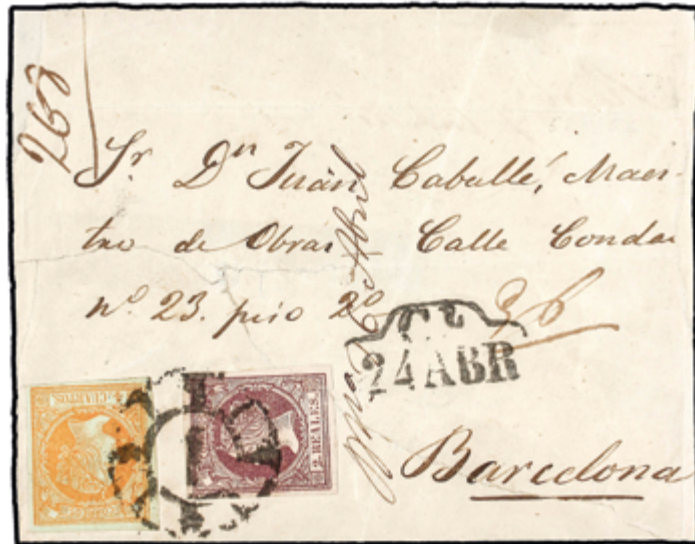 268
Sr. Dn Juan Caballé, Maes-
tro de Obras Calle Condal
nº 23. piso 2º
Abril
24 ABR
Barcelona
4 CUARTOS.
2 REALES.
CORREOS